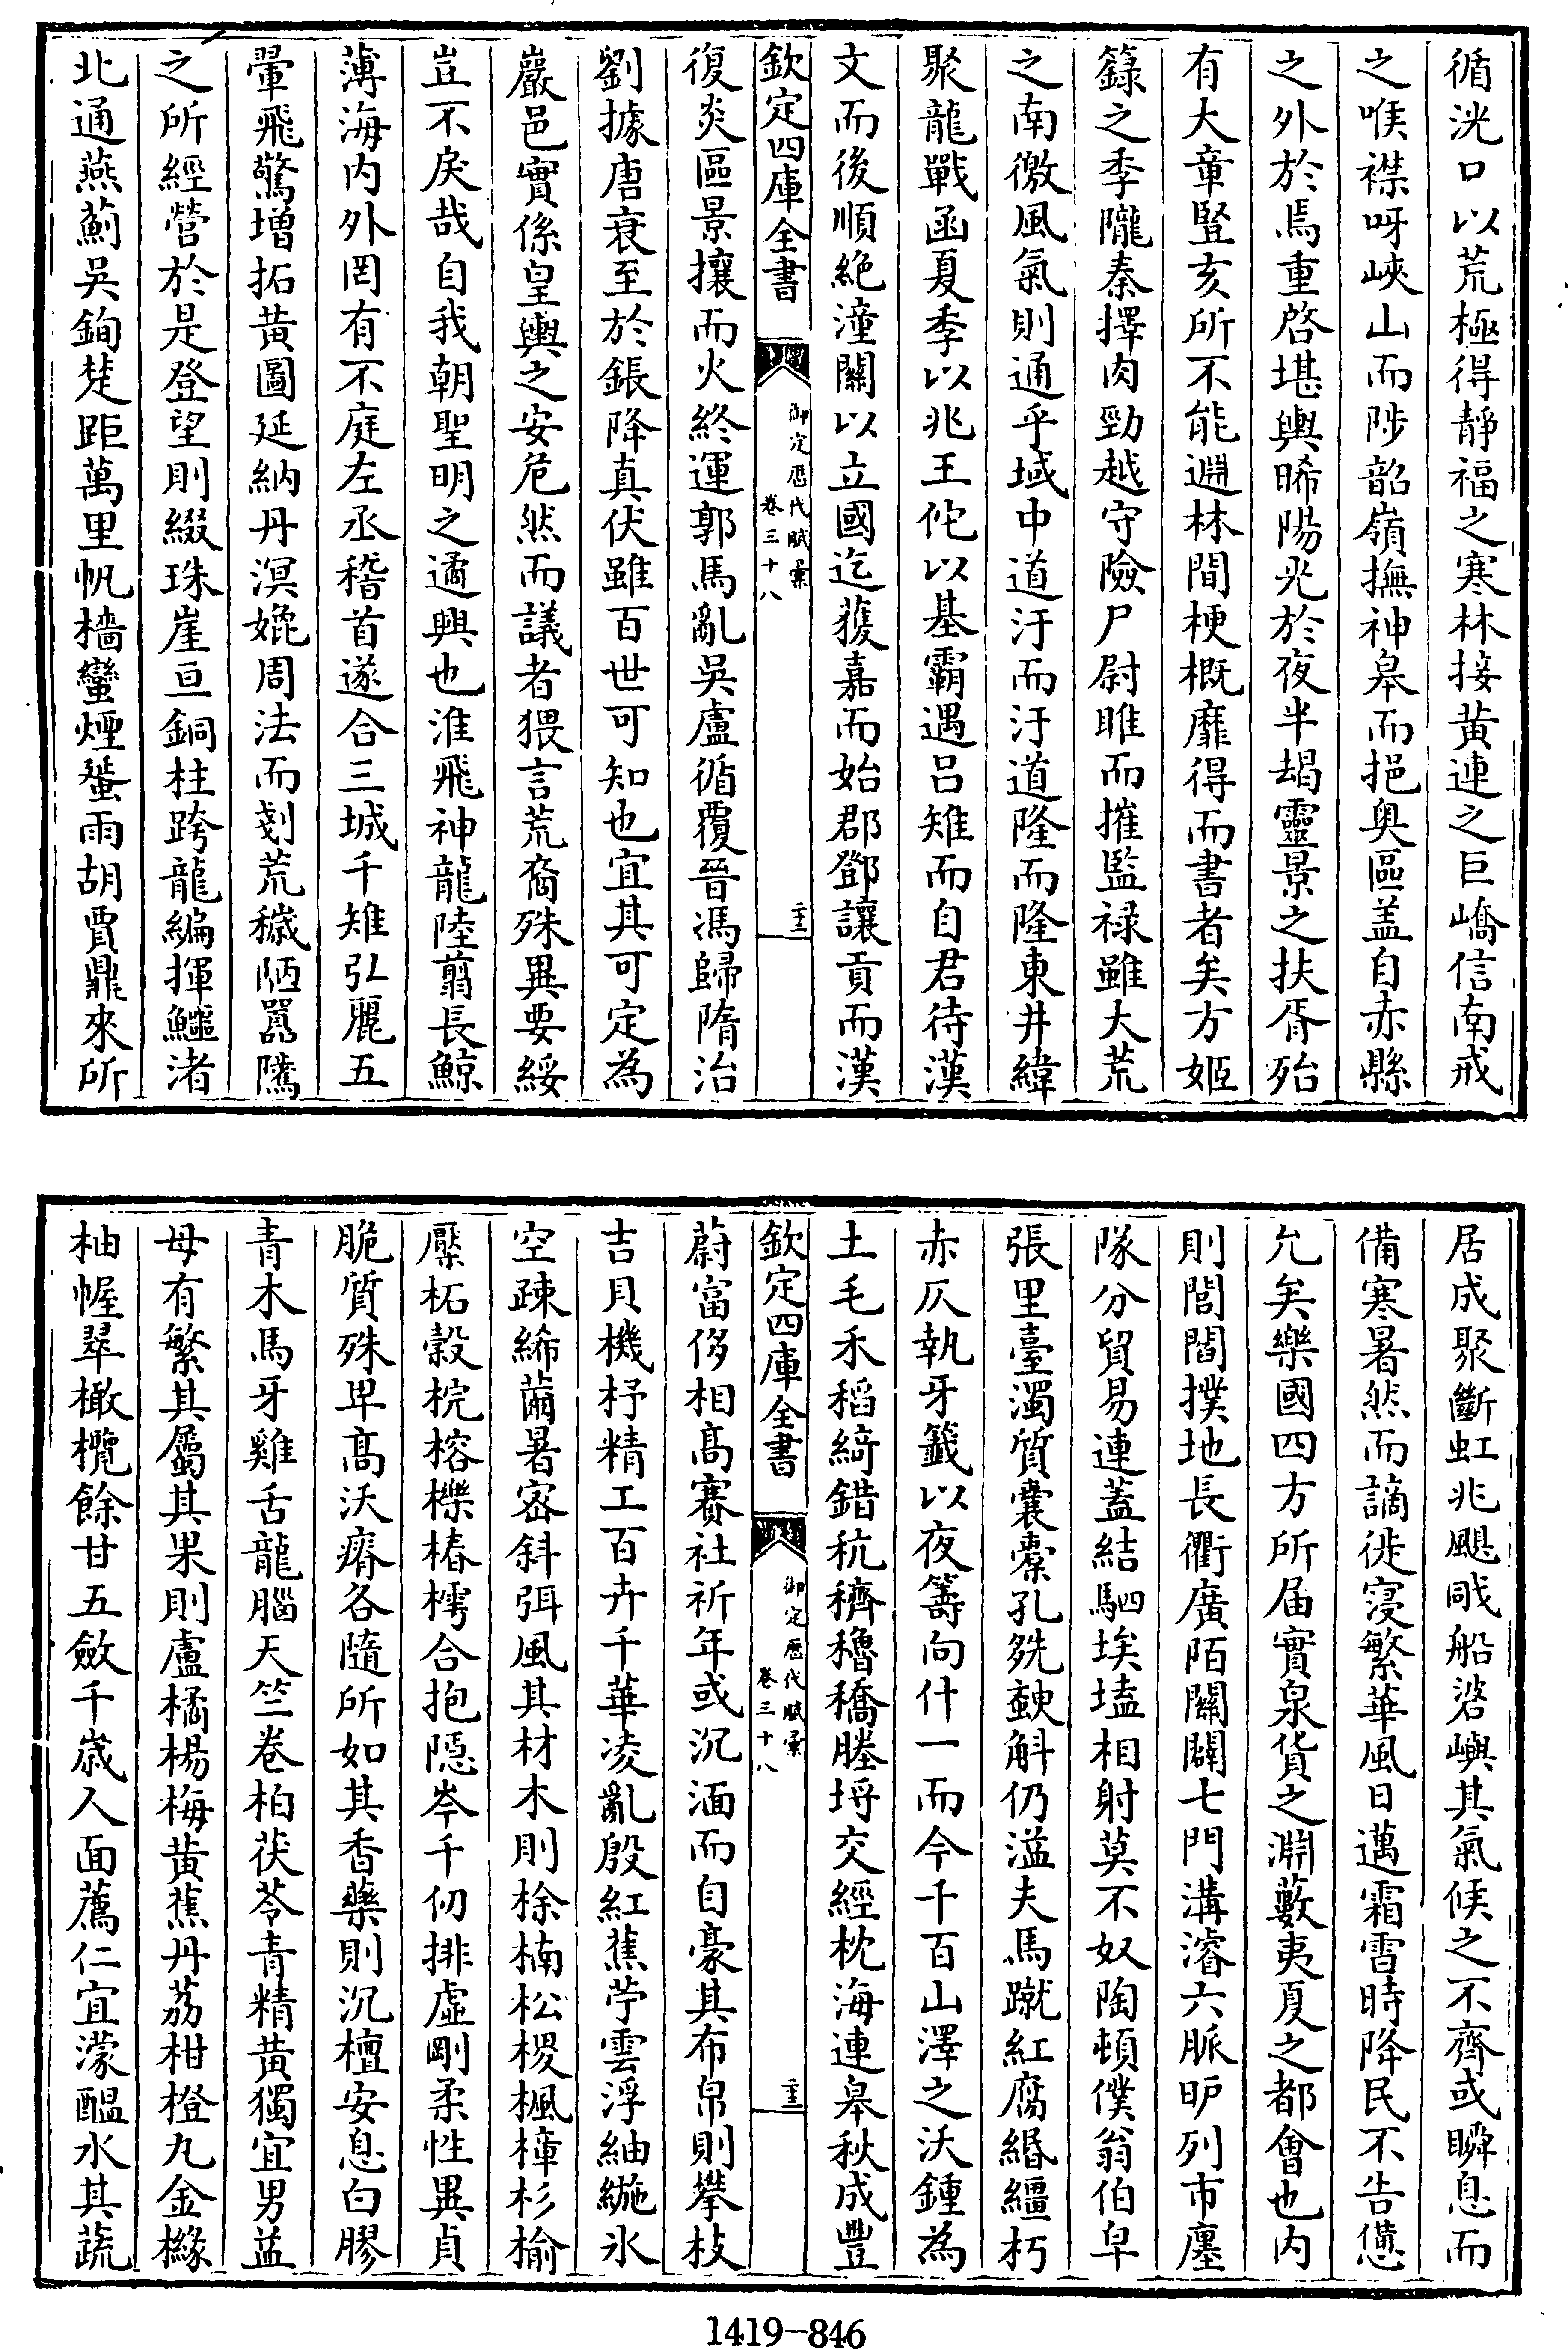 循洸口以荒極得靜福之寒林接黃連之巨嶠信南戒
之喉襟呀峽山而陟韶嶺撫神皋而挹奥區盖自赤縣
之外於焉重啓堪輿晞陽光於夜半朅靈景之扶胥殆
有大章豎亥所不能遡林間梗概靡得而書者矣方姬
籙之季隴秦擇肉勁越守險尸尉雎而摧監禄雖大荒
之南徼風氣則通乎域中道汙而汙道隆而隆東井緯
聚龍戰函夏季以兆王佗以基霸遇呂雉而自君待漢
文而後順絶潼關以立國迄䕶嘉而始郡鄧讓貢而漢
欽定四庫全書
御定歴代賦彙
卷三十八
復炎區景攘而火終運郭馬亂吳盧循覆晉馮歸隋治
劉據唐衰至於鋹降真伏雖百世可知也宜其可定為
嚴邑實係皇輿之安危然而議者猥言荒裔殊異要綏
豈不戾哉自我朝聖明之遹興也淮飛神龍陸翦長鯨
薄海内外罔有不庭左丞稽首遂合三城千雉弘麗五
翬飛驚增拓黃圖延納丹溟媲周法而剗荒穢陋囂隲
之所經營於是登望則綴珠崖亘銅柱跨龍編揮鱷渚
北通燕薊吳鉤楚距萬里帆檣蠻煙蜑雨胡賈鼎來所
居成聚斷虹兆颶戙船硰嶼其氣候之不齊或瞬息而
備寒暑然而謫徙寖繁華風日邁霜雪時降民不告憊
允矣樂國四方所届實泉貨之淵藪夷夏之都會也内
則閭閻撲地長衢廣陌闗闢七門溝濬六脈旷列市廛
隊分貿易連蓋結駟埃壒相射莫不奴陶頓僕翁伯阜
張里臺濁質囊橐孔兟䖵斛仍溢夫馬蹴紅腐緡繮朽
赤仄執牙籤以夜籌向什一而今千百山澤之沃鍾為
土毛禾稻綺錯秔穧穭穚塍埒交經枕海連皋秋成豐
欽定四庫全書
御定歴代賦彙
卷三十八
蔚富侈相髙賽社祈年或沉湎而自豪其布帛則攀枝
吉貝機杼精工百卉千華凌亂殷紅蕉苧雲浮紬絁氷
空疎絺繭暑宻斜弭風其材木則棯楠松㮨楓樟杉榆
檿柘榖梡榕櫟椿樗合抱隠岑千仞排虛剛柔性異貞
脆質殊卑髙沃瘠各隨所如其香藥則沉檀安息白膠
青木馬牙雞舌龍腦天竺卷柏茯苓青精黃獨宜男益
母有繁其屬其果則盧橘楊梅黃蕉丹荔柑橙九金櫞
柚幄翠橄欖餘甘五斂千歲人面薦仁宜濛醖水其蔬
1419-846